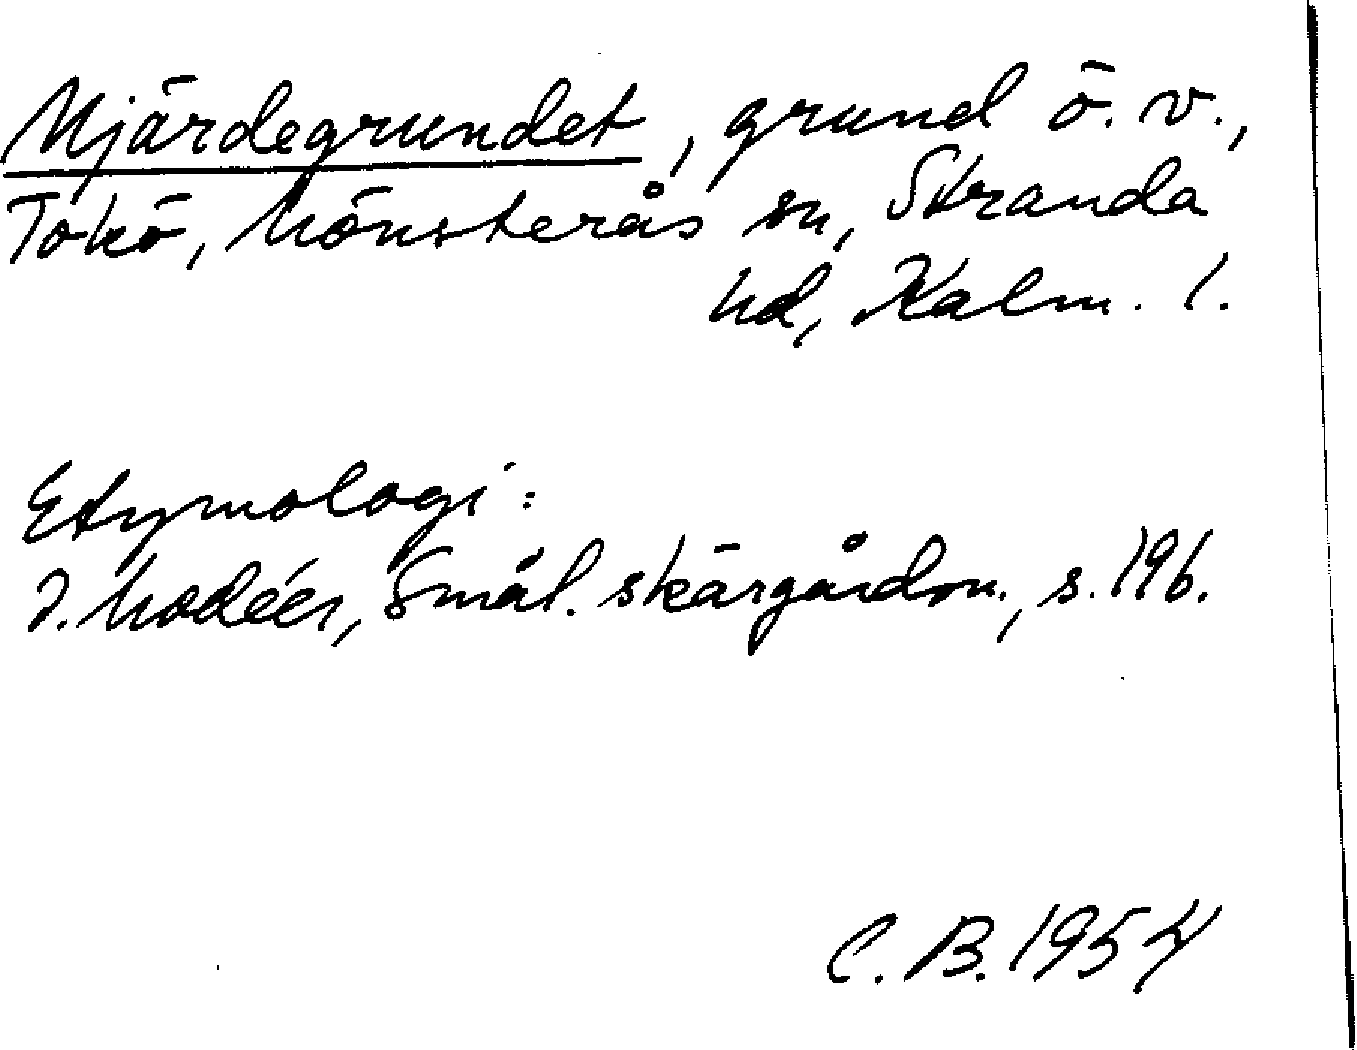 Mjärdegrundet, grund ö. v.,
Tokö, Mönsterås sn, Stranda
hd, Kalm. l.
Etymologi:
I. Modéer, Smål. skärgårdsn., s. 196.
C. B. 1954